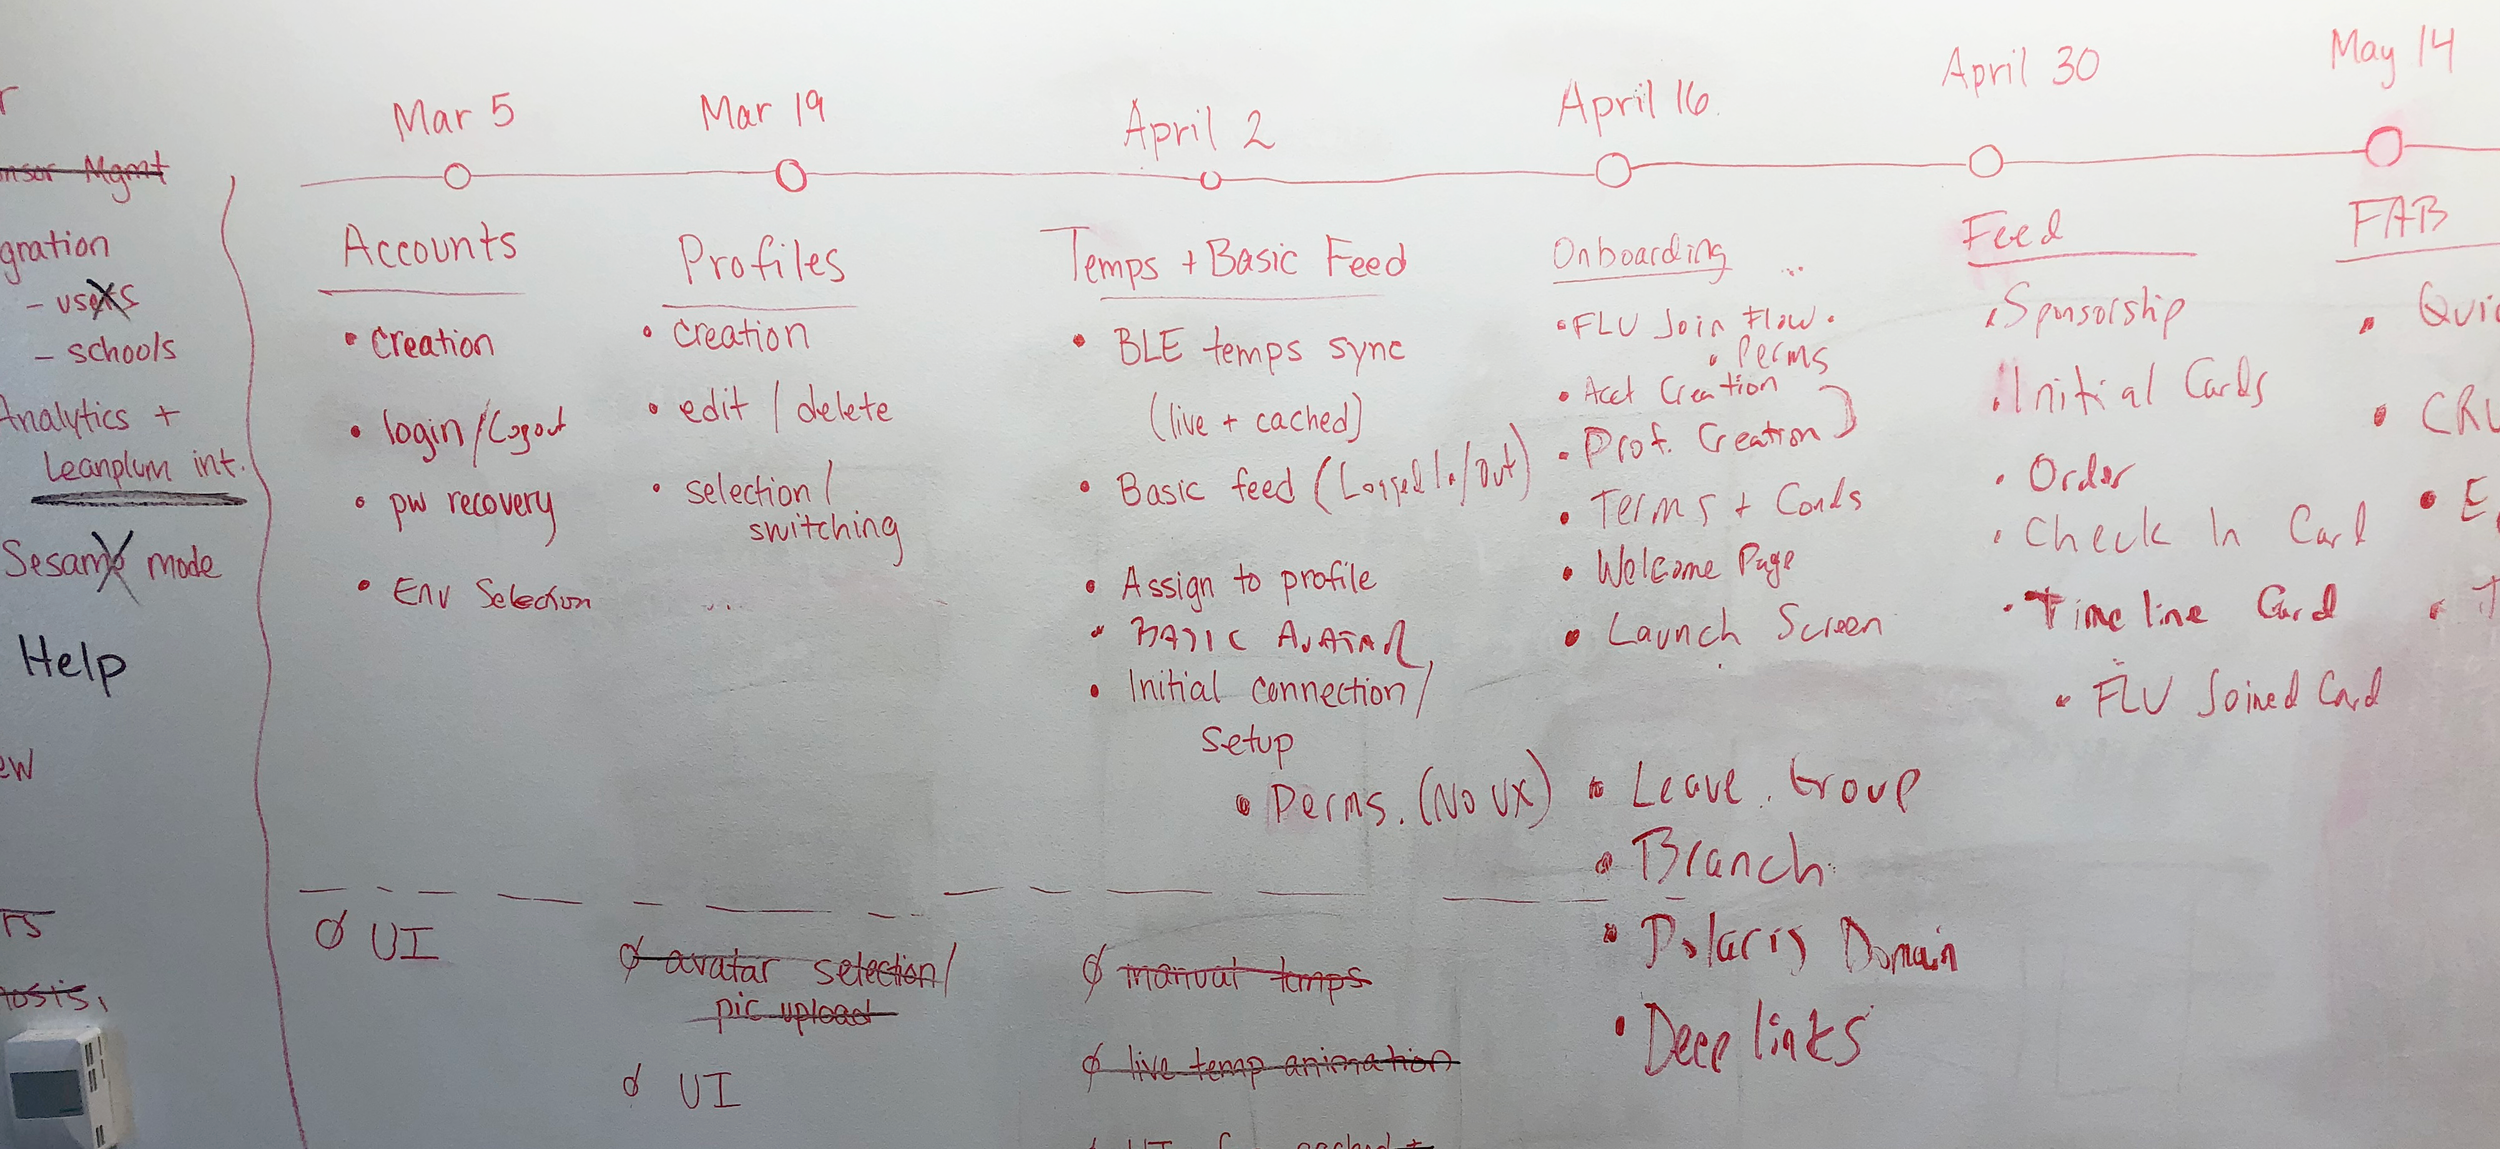 Mgmt
gration
- users
- schools
Analytics +
Leanplum int.
Sesame mode
Help
Mar 5
Accounts
• creation
• login/Logout
• pw recovery
• Env Selection
UI
Mar 19
Profiles
• creation
• edit / delete
• selection /
switching
...
avatar selection/
pic upload
UI
April 2
Temps + Basic Feed
• BLE temps sync
(live + cached)
• Basic feed (Logged In/Out)
• Assign to profile
• BASIC AVATAR
• Initial connection /
Setup
• Perms. (No UX)
manual temps
live temp animation
UI
April 16
Onboarding ...
• FLU Join Flow •
• Perms
• Acct Creation
• Prof. Creation
• Terms + Conds
• Welcome Page
• Launch Screen
• Leave Group
• Branch
• Polaris Domain
• Deep links
April 30
Feed
• Sponsorship
• Initial Cards
• Order
• Check In Card
• Timeline Card
• FLU Joined Card
May 14
FAB
• Quic
• CRU
• E